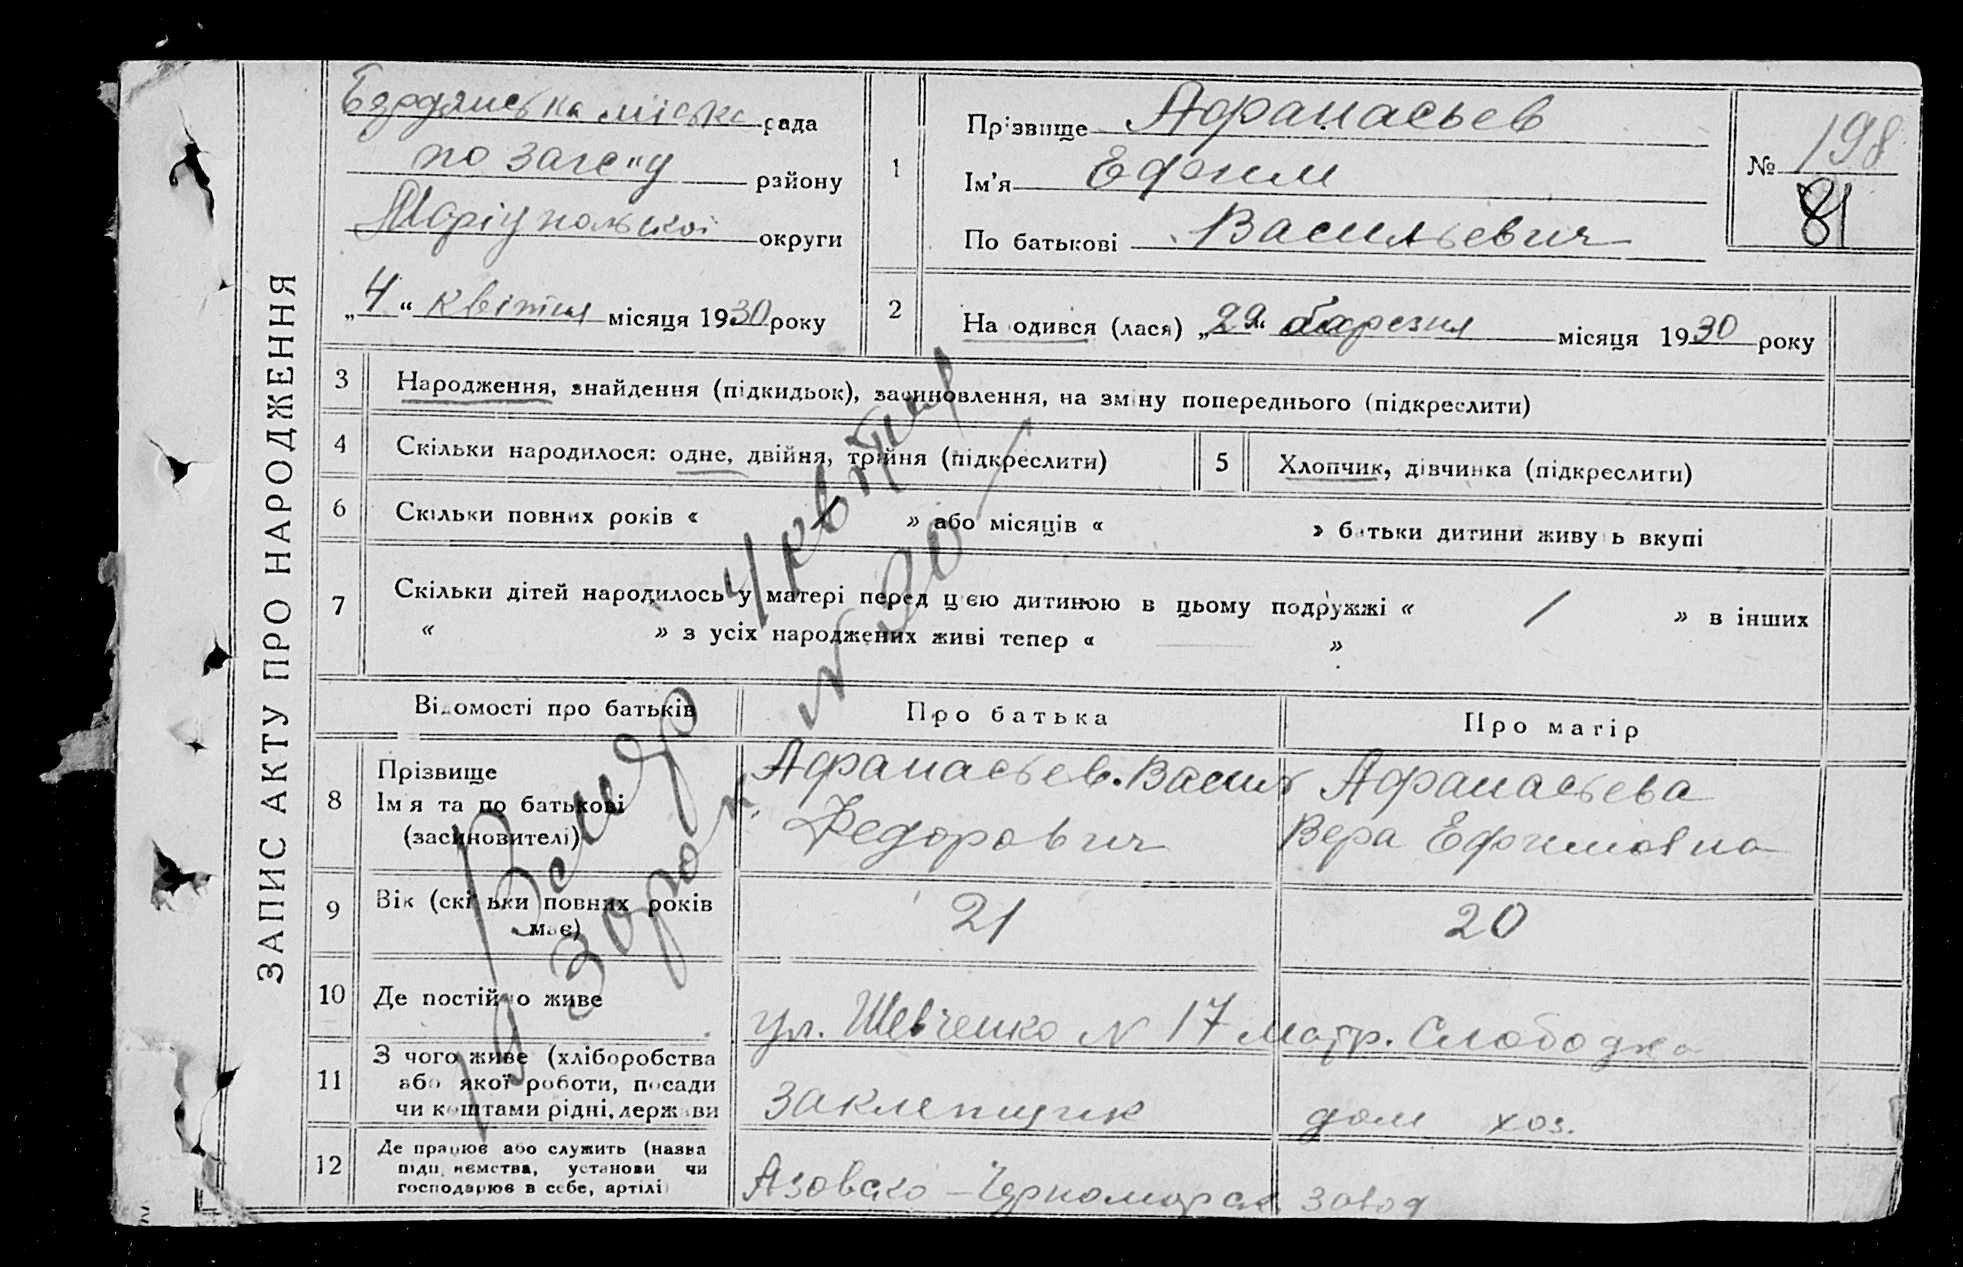 ЗАПИС АКТУ ПРО НАРОДЖЕННЯ
Бердянська міська рада
по загсу району
Маріупольської округи
„4“ квітня місяця 1930 року
1
Прізвище Афанасьев
Ім’я Ефим
По батькові Васильевич
№ 198
81
2
На одився (лася) „29“ березня місяця 1930 року
3 Народження, знайдення (підкидьок), засиновлення, на зміну попереднього (підкреслити)
4 Скільки народилося: одне, двійня, трійня (підкреслити)
5 Хлопчик, дівчинка (підкреслити)
6 Скільки повних років « » або місяців « » батьки дитини живуть вкупі
7 Скільки дітей народилось у матері перед цією дитиною в цьому подружжі « / » в інших
« » з усіх народжених живі тепер « »
4 квітня
№ 20
Відомості про батьків
Про батька
Про матір
8 Прізвище
Ім я та по батькові
(засиновителі)
Афанасьев Васил
Федорович
Афанасьева
Вера Ефимовна
9 Вік (скільки повних років
має)
21
20
10 Де постійно живе
ул. Шевченко № 17 Матр. Слободка
11 З чого живе (хліборобства
або якої роботи, посади
чи коштами рідні, держави
заклепщик
дом хоз.
12 Де працює або служить (назва
підприємства, установи чи
господарює в себе, артілі)
Азовско-Черноморск завод